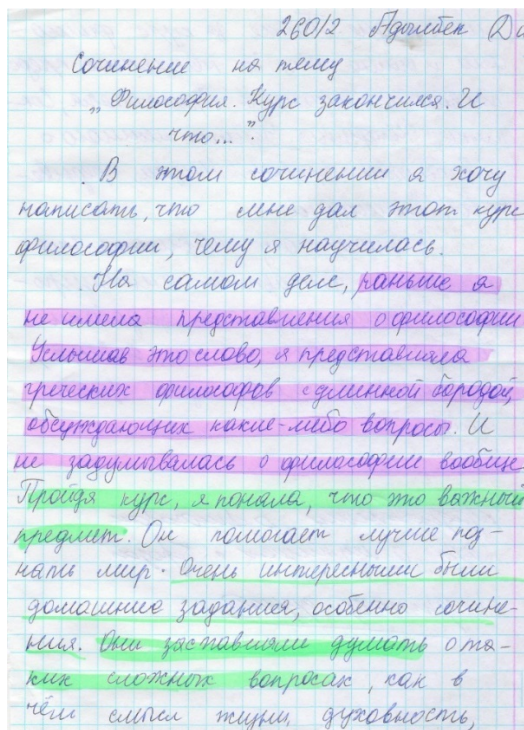 260/2 Адылбек Ди
Сочинение на тему
„Философия. Курс закончился. И
что...".
В этом сочинении я хочу
написать, что мне дал этот курс
философии, чему я научилась.
На самом деле, раньше я
не имела представления о философии.
Услышав это слово, я представляла
греческих философов с длинной бородой,
обсуждающих какие-либо вопросы. И
не задумывалась о философии вообще.
Пройдя курс, я поняла, что это важный
предмет. Он помогает лучше поз-
нать мир. Очень интересными были
домашние задания, особенно сочине-
ния. Они заставляли думать о та-
ких сложных вопросах, как в
чём смысл жизни, духовность,